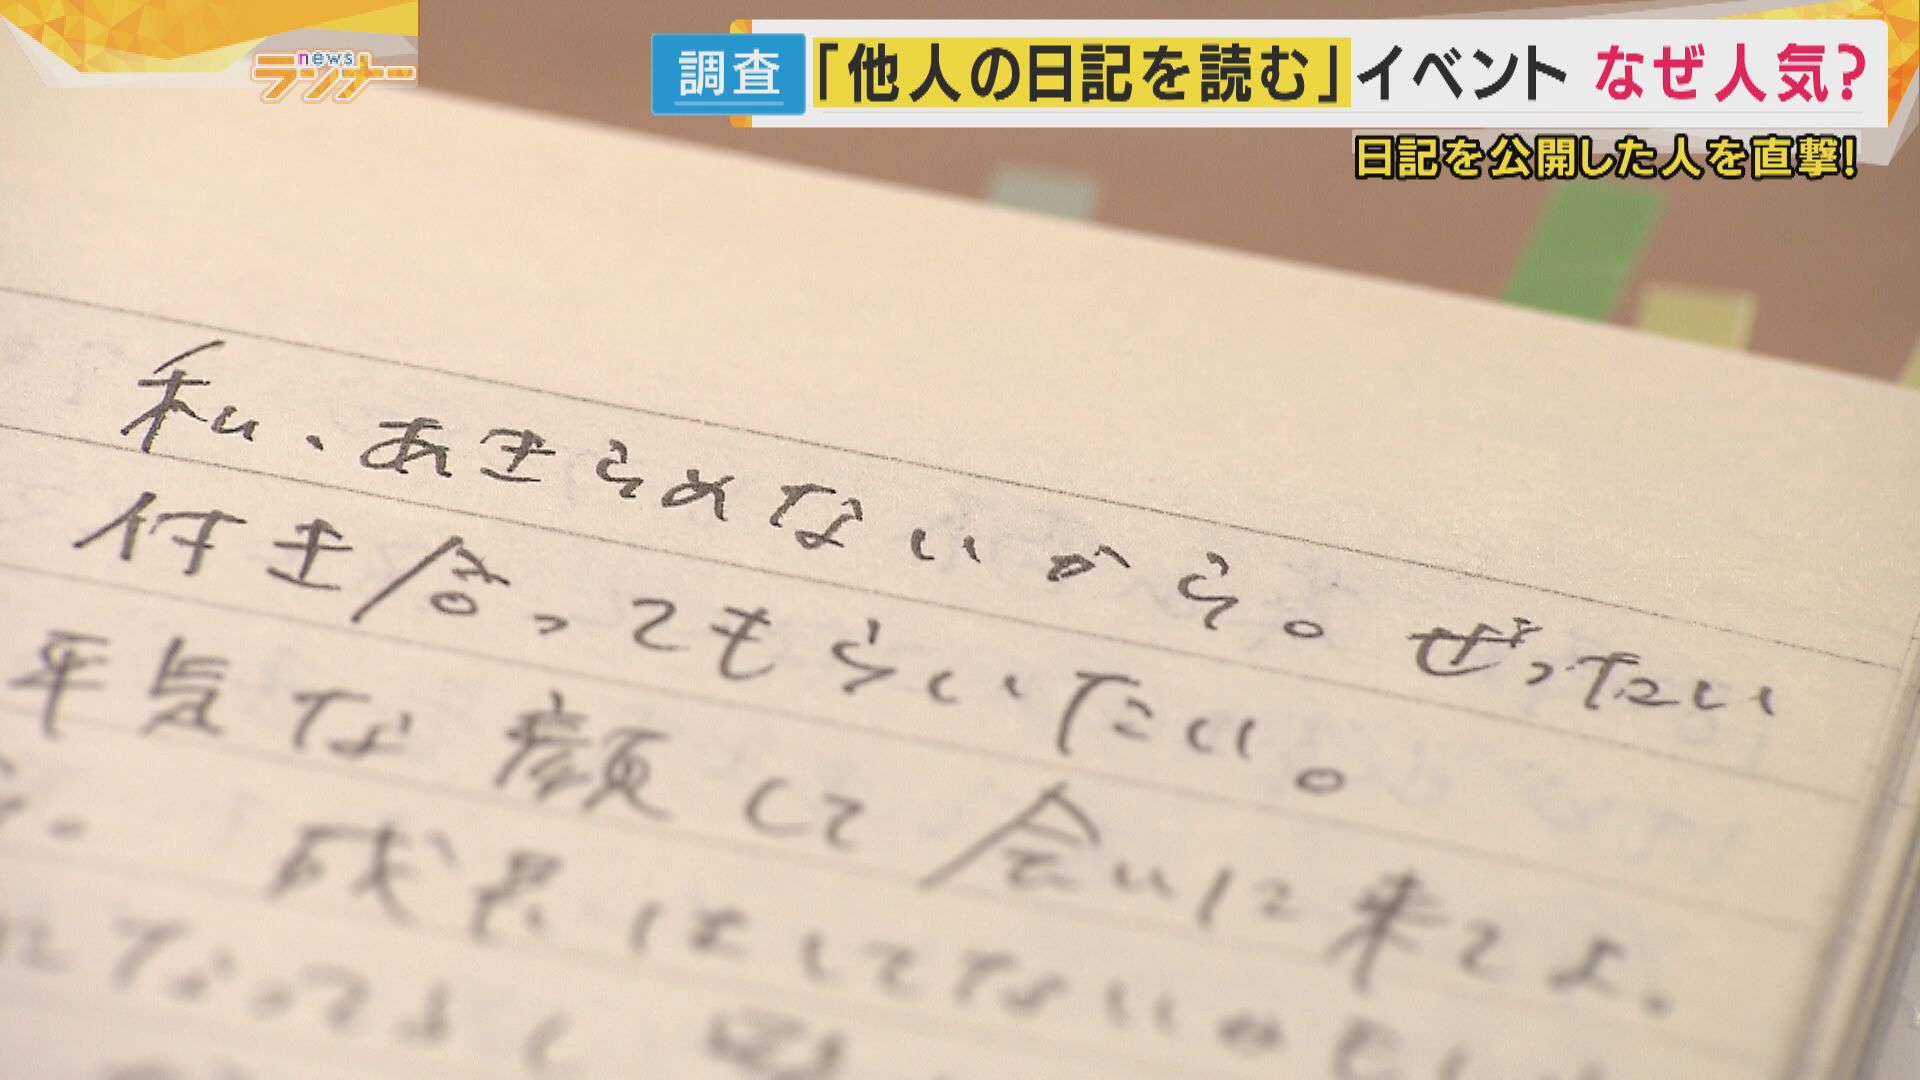 news
ランナー
調査 「他人の日記を読む」イベント なぜ人気?
日記を公開した人を直撃!
私、あきらめないから。ぜったい
付き合ってもらいたい。
平気な顔して会いに来てよ。
成長はしてないけど
になってよし